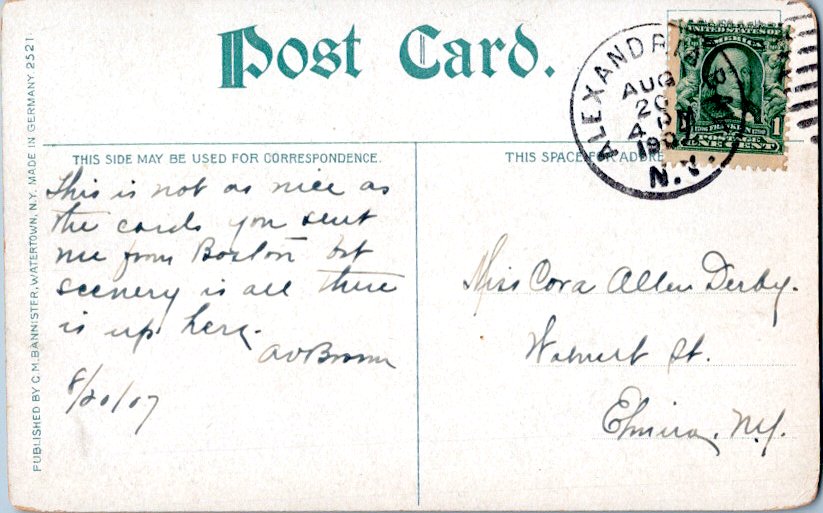 Post Card.
THIS SIDE MAY BE USED FOR CORRESPONDENCE.
THIS SPACE FOR ADDRE
PUBLISHED BY C. M. BANNISTER, WATERTOWN, N.Y. MADE IN GERMANY 2521
ALEXANDRIA
AUG
20
4 PM
190
N.Y.
UNITED STATES OF
AMERICA
FRANKLIN
POSTAGE
ONE CENT
1
This is not as nice as
the cards you sent
me from Boston but
scenery is all there
is up here.
8/20/07
Miss Cora Allen Derby.
Walnut St.
Elmira, N.Y.